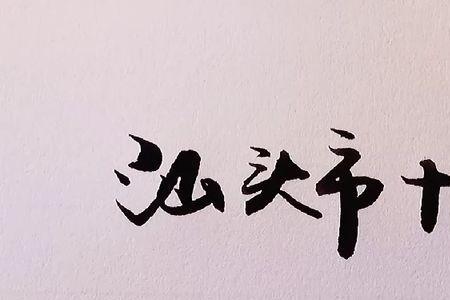 汕头市十